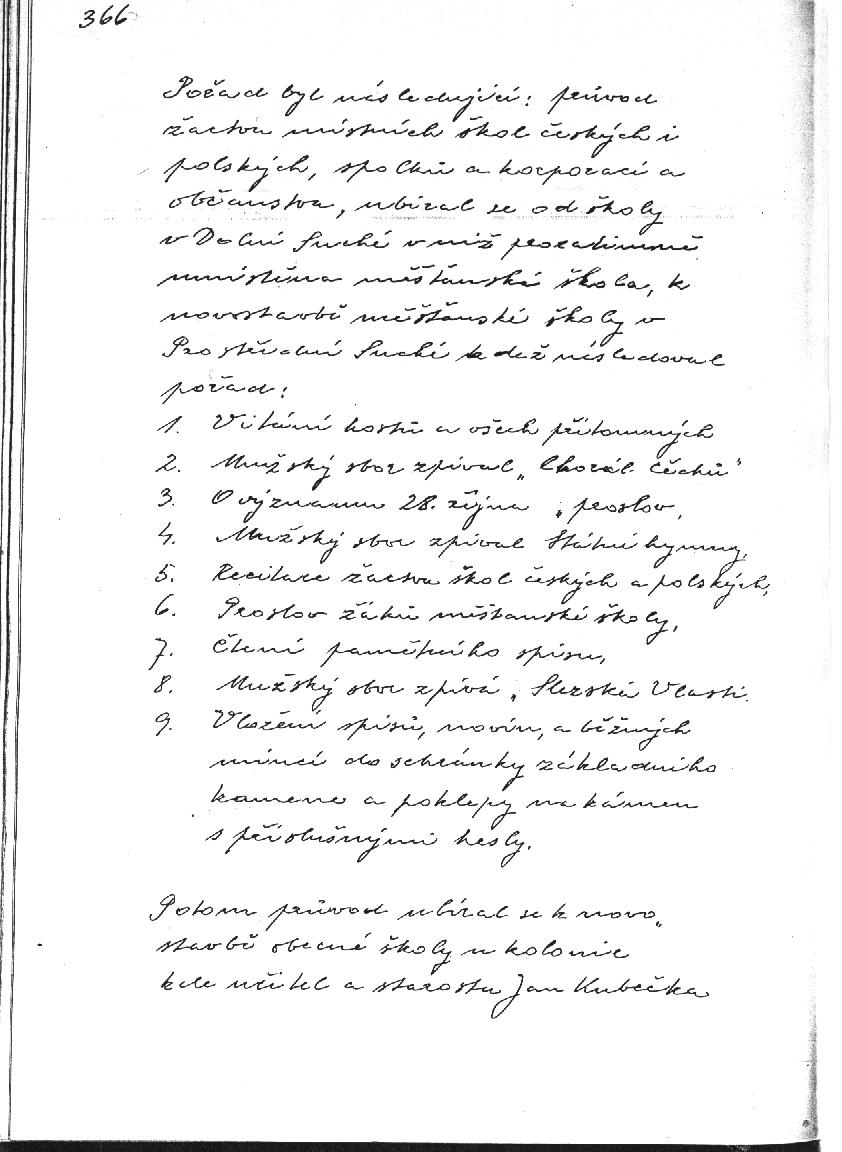 366
Pořad byl následující: průvod
žactva místních škol českých i
polských, spolků a korporací a
občanstva, ubíral se od školy
v Dolní Suché v níž prozatimně
umístěna měšťanská škola, k
novostavbě měšťanské školy v
Prostřední Suché kdež následoval
pořad:
1. Vítání hostů a všech přítomných
2. Mužský sbor zpíval „Chorál Čechů"
3. O významu 28. října „ proslov,
4. Mužský sbor zpíval Státní hymny,
5. Recitace žactva škol českých a polských,
6. Proslov žáků měšťanské školy,
7. Čtení pamětního spisu,
8. Mužský sbor zpívá „Slezská Vlasti.
9. Vložení spisů, novin, a běžných
mincí do schránky základního
kamene a poklepy na kámen
s příslušnými hesly.
Potom průvod ubíral se k novo„
stavbě obecné školy u kolonie
kde učitel a starosta Jan Kubečka